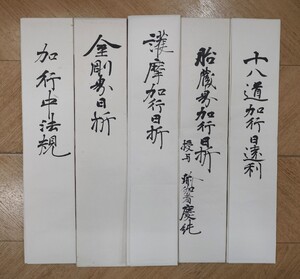 十八道加行日速利
胎蔵界加行日折
授与 瑜伽者慶純
護摩加行日折
金剛界日折
加行中法規